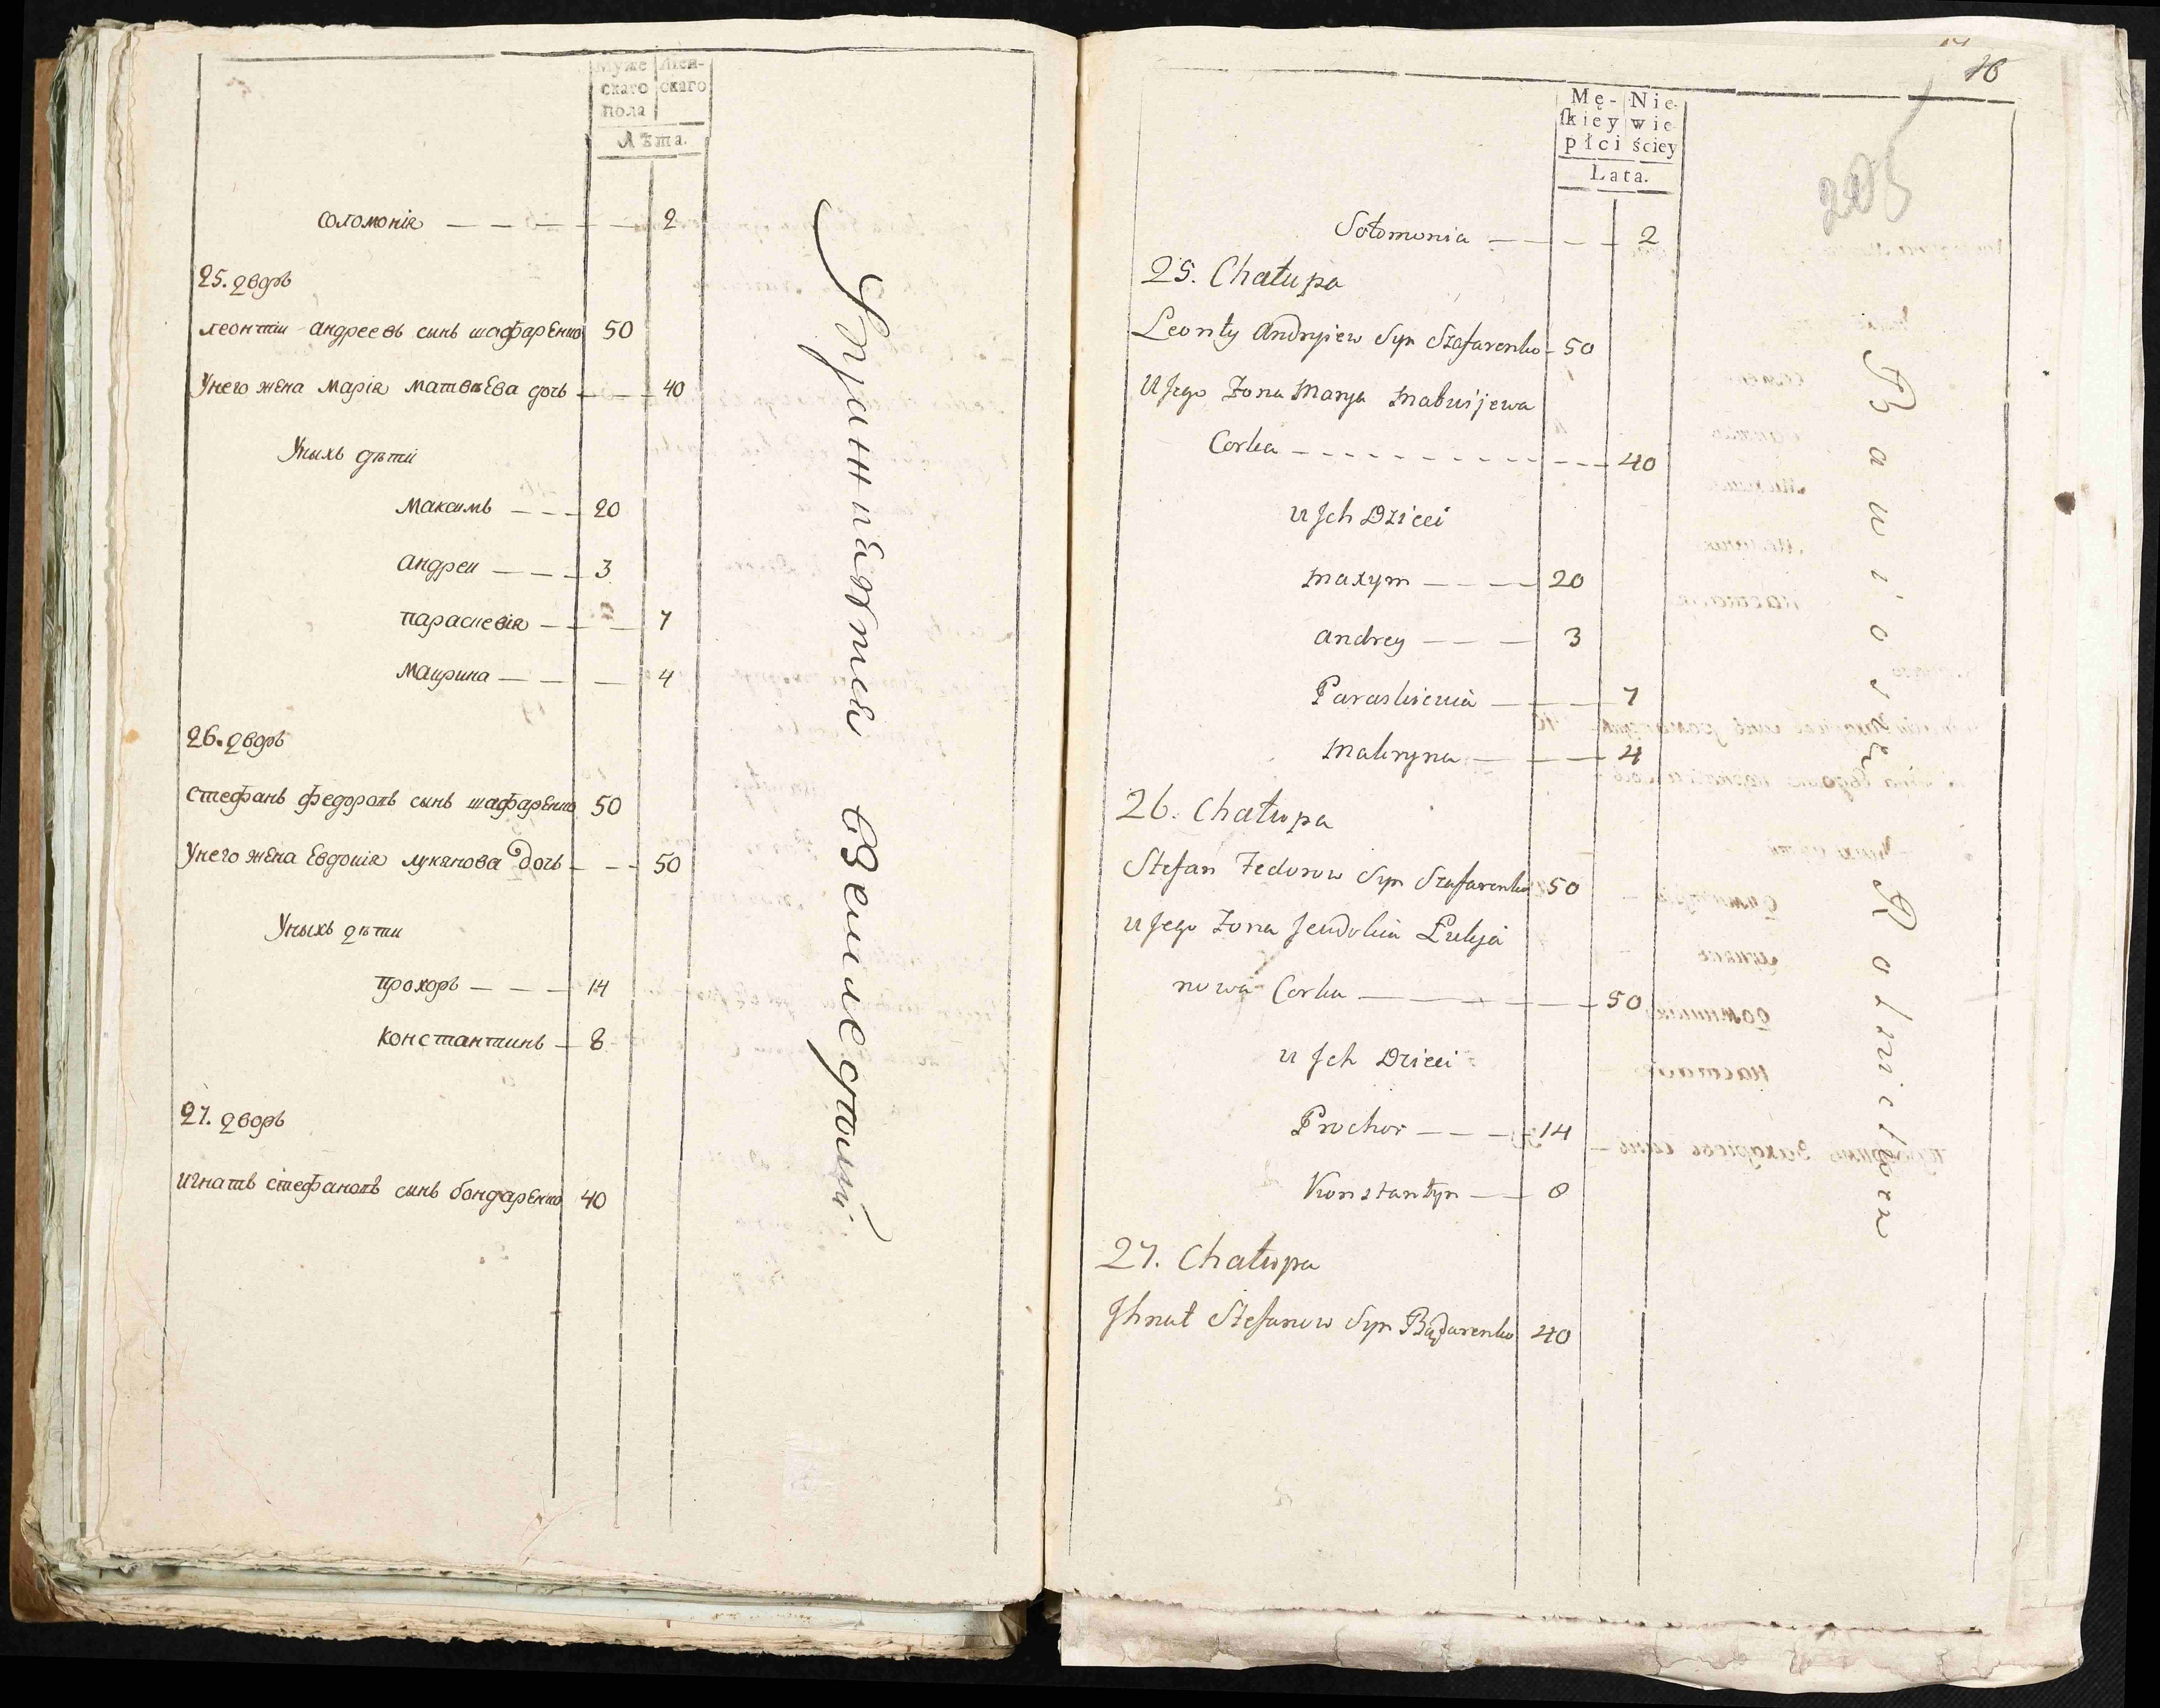 Муже скаго пола
Жен- скаго
Лѣта.
Соломонія — — — — — 2
25. дворъ
Леонтіи андреевъ сынъ шафарЕнко 50
Унего жЕна Марія МатвѣЕва дочь — — 40
Уныхъ дѣти
Максимъ — — — 20
Андреи — — — 3
Параскевія — — — 7
Макрина — — — 4
26. дворъ
Стефанъ федоровъ сынъ шафарЕнко 50
Унего жЕна Евдокія лукянова дочь — — — 50
Уныхъ дѣти
Прохоръ — — — 14
Константинъ — 8
27. дворъ
Игнатъ стефановъ сынъ бондарЕнко 40
Упражняются вземледѣліи
16
205
Mę- ſkiey płci
Nie- wie- ściey
Lata.
Sołomonia — — — — 2
25. Chałupa
Leonty Andryiew Syn Szafarenko – 50
U Jego Żona Marya Matwijewa
Corka – – – – – – – – – 40
u Jch Dzieci
Maxym — — — 20
Andrey — — — 3
Paraskiewia — — — 7
Makryna — — — 4
26. Chałupa
Stefan Fedorow Syn Szafarenko 50
u Jego Żona Jewdokia Łukja
nowa Corka — — — — 50
u Jch Dzieci
Prochor — — — 14
Konstantyn — — 8
27. Chałupa
Jhnat Stefanow Syn Bądarenko 40
Bawio się Rolnictwem